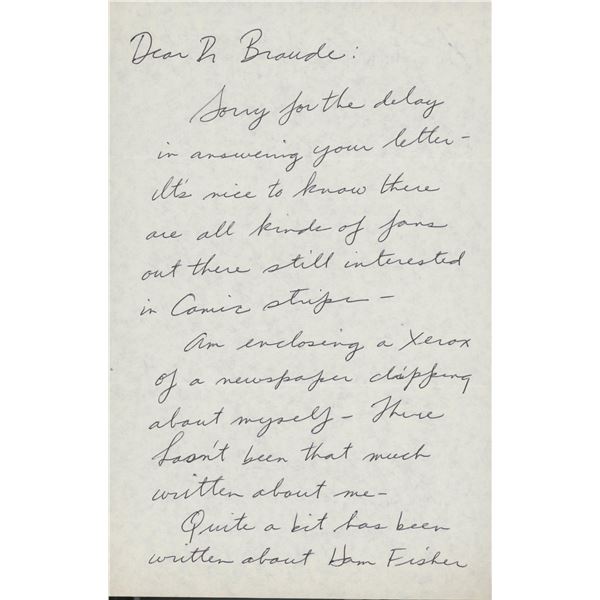 Dear Dr Braude:
Sorry for the delay
in answering your letter -
It's nice to know there
are all kinds of fans
out there still interested
in Comic strips -
Am enclosing a Xerox
of a newspaper clipping
about myself - There
hasn't been that much
written about me -
Quite a bit has been
written about Ham Fisher